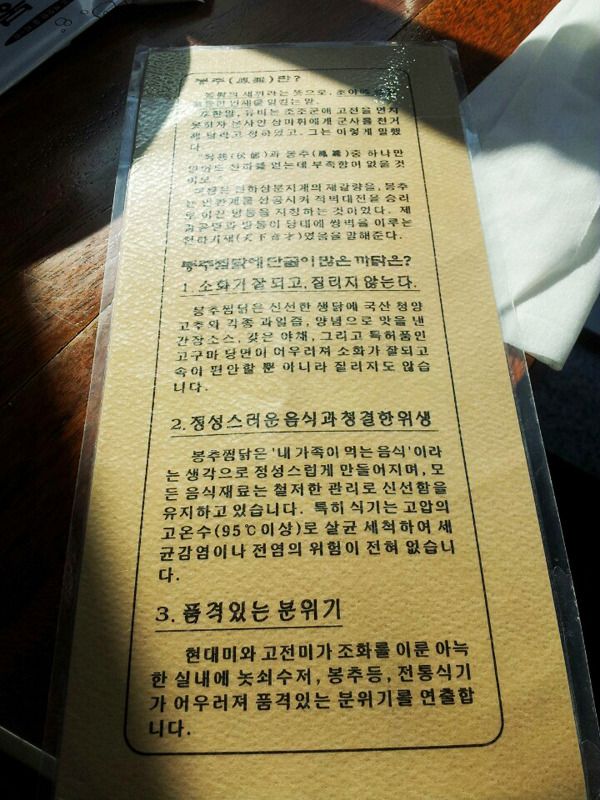 봉추(鳳雛)란?
봉황의 새끼라는 뜻으로, 초야에
한말, 유비는 조조군에 고전을 면치
못하자 본사인 사마휘에게 군사를 천거
해 달라고 청하였고, 그는 이렇게 말했
다.
"복룡(伏龍)과 봉추(鳳雛)중 하나만
얻어도 천하를 얻는데 부족함이 없을 것
이오"
복룡은 천하삼분지계의 제갈량을, 봉추
는 연환계를 성공시켜 적벽대전을 승리
로 이끈 방통을 지칭하는 것이었다. 제
갈공명과 방통이 당대에 쌍벽을 이루는
천하기재(天下奇才)였음을 말해준다.
봉추찜닭에 단골이 많은 까닭은?
1. 소화가 잘 되고, 질리지 않는다.
봉추찜닭은 신선한 생닭에 국산 청양
고추와 각종 과일즙, 양념으로 맛을 낸
간장소스, 갖은 야채, 그리고 특허품인
고구마 당면이 어우러져 소화가 잘되고
속이 편안할 뿐 아니라 질리지도 않습
니다.
2. 정성스러운음식과청결한위생
봉추찜닭은 '내 가족이 먹는 음식'이라
는 생각으로 정성스럽게 만들어지며, 모
든 음식재료는 철저한 관리로 신선함을
유지하고 있습니다. 특히 식기는 고압의
고온수(95℃이상)로 살균 세척하여 세
균감염이나 전염의 위험이 전혀 없습니
다.
3. 품격있는 분위기
현대미와 고전미가 조화를 이룬 아늑
한 실내에 놋쇠수저, 봉추등, 전통식기
가 어우러져 품격있는 분위기를 연출합
니다.